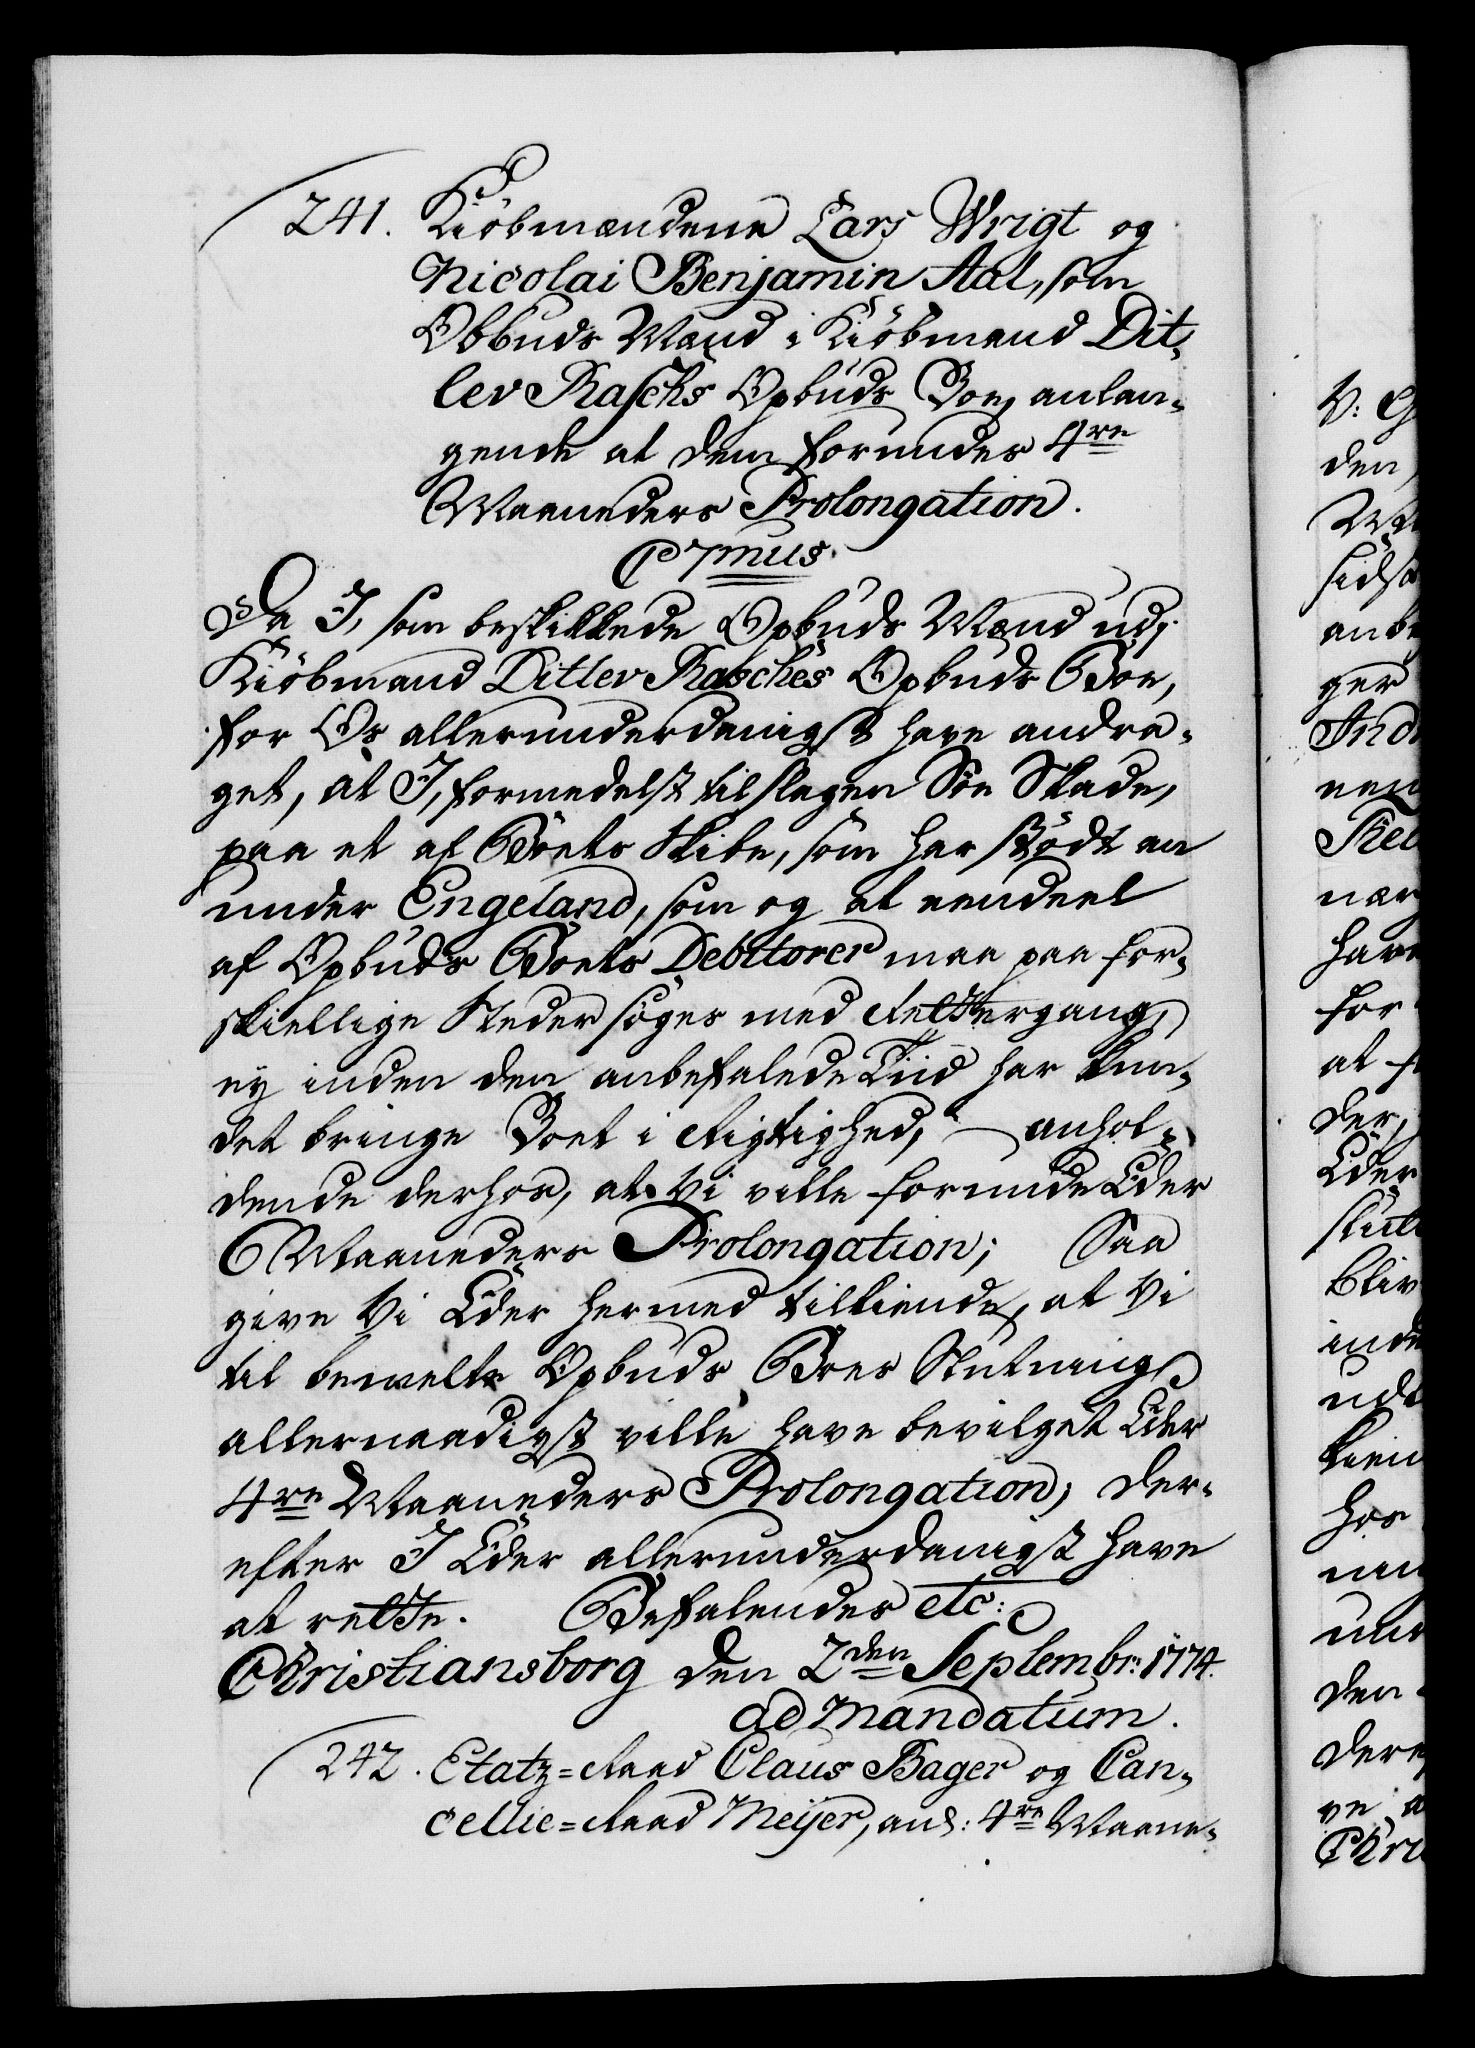 241. Kiöbmændene Lars Wrigt og
Nicolai Benjamin Aal, som
Obbuds Mænd i Kiöbmand Dit-
lev Raschs Opbuds Boe, anlan-
gende at dem forundes 4re
Maaneders Prolongation.
C7mus.
Da I, som beskikkede Opbuds Mænd udj
Kiöbmand Ditlev Rasches Opbuds Boe,
for Os allerunderdanigst have andra-
get, at I, formedelst tilslagen Söe Skade,
paa et af Boets Skibe, som har stödt an
under Engeland, som og at eendeel
af Opbuds Boets Debitorer maa paa for-
skiellige Steder söges med Rettergang,
ey inden den anbefalede Tiid har kun-
det bringe Boet i Rigtighed, anhol-
dende derhos, at Vi ville forunde Eder
6 Maaneders Prolongation; Saa
give Vi Eder hermed tilkiende, at Vi
til bemelte Opbuds Boes Slutning
allernaadigst ville have bevilget Eder
4re Maaneders Prolongation; Der-
efter I Eder allerunderdanigst have
at rette. Befalendes etc:
Christiansborg den 2den Septembr: 1774.
ad Mandatum.
242. Etatz=Raad Claus Bager og Can-
cellie=Raad Meijer, anl: 4re Maane-
V: G
den
ger
Ind
nær
have
for
at
der,
Eder
bliv
inde
udt
kien
hos
den
Chri